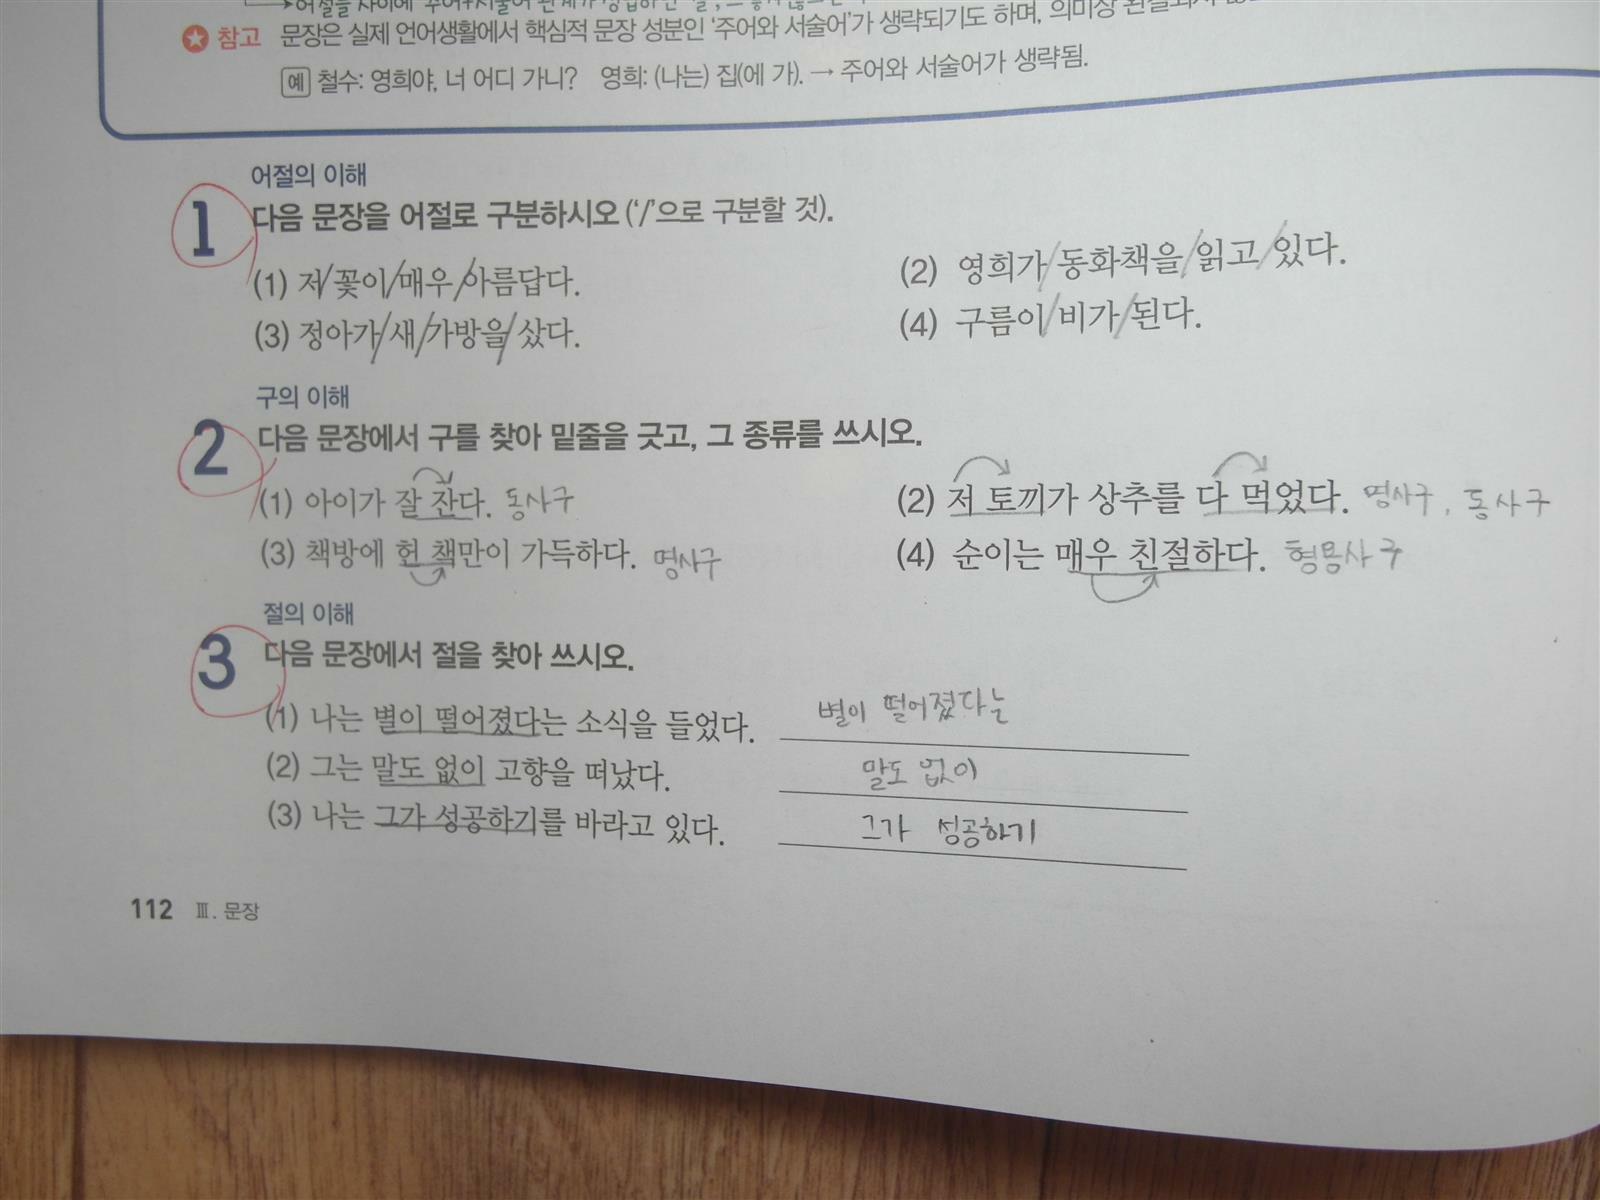 참고 문장은 실제 언어생활에서 핵심적 문장 성분인 '주어와 서술어'가 생략되기도 하며, 의미상
예 철수: 영희야, 너 어디 가니? 영희: (나는) 집(에 가). → 주어와 서술어가 생략됨.
어절의 이해
1 다음 문장을 어절로 구분하시오 ('/'으로 구분할 것).
(1) 저/꽃이/매우/아름답다. (2) 영희가/동화책을/읽고/있다.
(3) 정아가/새/가방을/샀다. (4) 구름이/비가/된다.
구의 이해
2 다음 문장에서 구를 찾아 밑줄을 긋고, 그 종류를 쓰시오.
(1) 아이가 잘 잔다. 동사구 (2) 저 토끼가 상추를 다 먹었다. 명사구, 동사구
(3) 책방에 헌 책만이 가득하다. 명사구 (4) 순이는 매우 친절하다. 형용사구
절의 이해
3 다음 문장에서 절을 찾아 쓰시오.
(1) 나는 별이 떨어졌다는 소식을 들었다. 별이 떨어졌다는
(2) 그는 말도 없이 고향을 떠났다. 말도 없이
(3) 나는 그가 성공하기를 바라고 있다. 그가 성공하기
112 Ⅲ. 문장